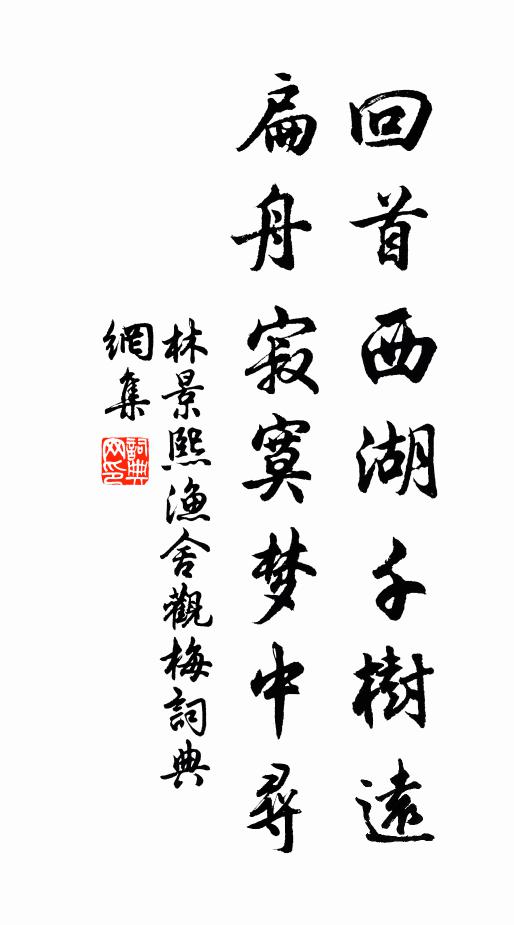 回首西湖千樹遠
扁舟寂寞梦中尋
林景熙漁舍觀梅詞典
網集
詞典
网印